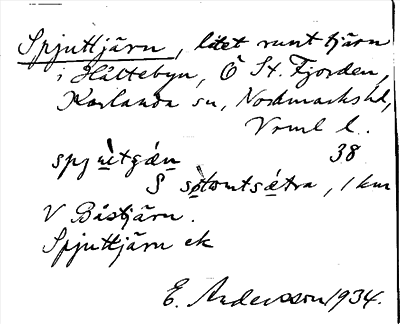 Spjuttjärn, litet runt tjärn
i Hältebyn, Ö St. Fjorden,
Karlanda sn, Nordmarks hd,
Vrml l.
38
spjuttjän
S sätra, 1 km
V Båstjärn.
Spjuttjärn ek
E. Andersson 1934.